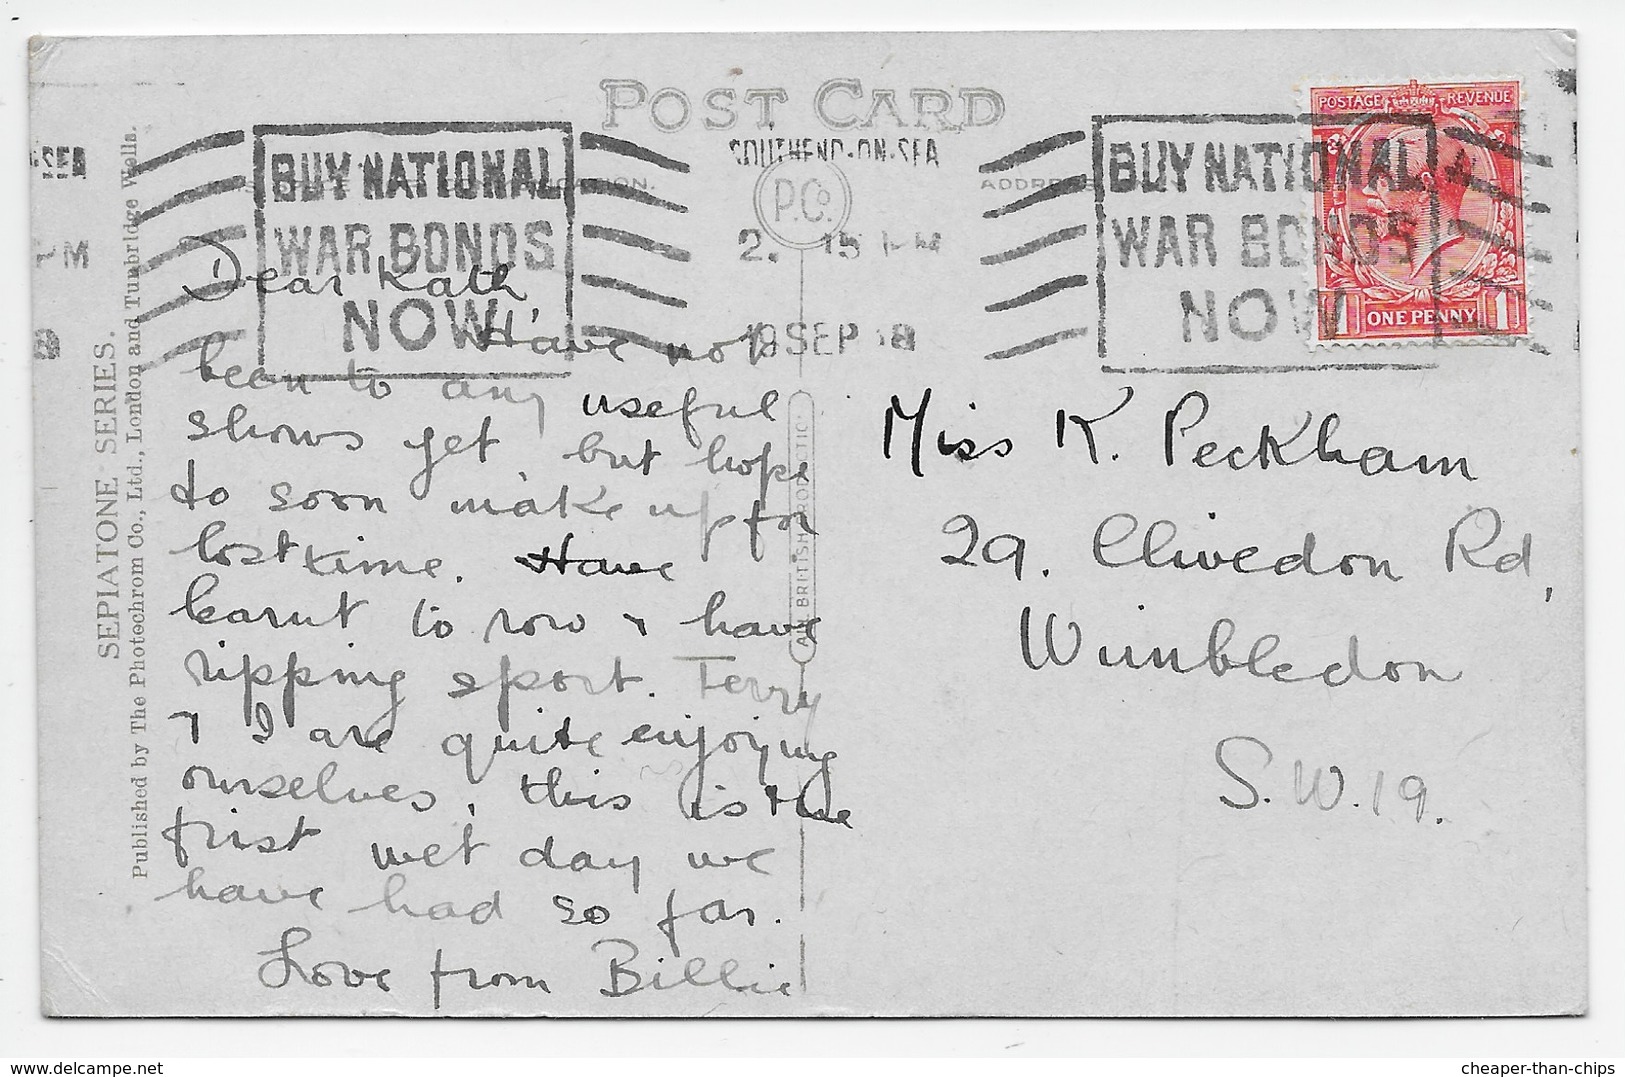 POST CARD
SOUTHEND-ON-SEA
2. 15 PM
19 SEP 18
BUY NATIONAL
WAR BONDS
NOW
BUY NATIONAL
WAR BONDS
NOW
-SEA
PM
8
P.Co.
ADDRESS
POSTAGE REVENUE
1 ONE PENNY 1
SEPIATONE SERIES.
Published by The Photochrom Co., Ltd., London and Tunbridge Wells.
ALL BRITISH PRODUCTION
Dear Kath,
Have not
been to any useful
shows yet, but hope
to soon make up for
lost time. Have
learnt to row & have
ripping sport. Terry
& I are quite enjoying
ourselves, this is the
first wet day we
have had so far.
Love from Billie
Miss K. Peckham
29. Clivedon Rd,
Wimbledon
S.W.19.
cheaper-than-chips
www.delcampe.net